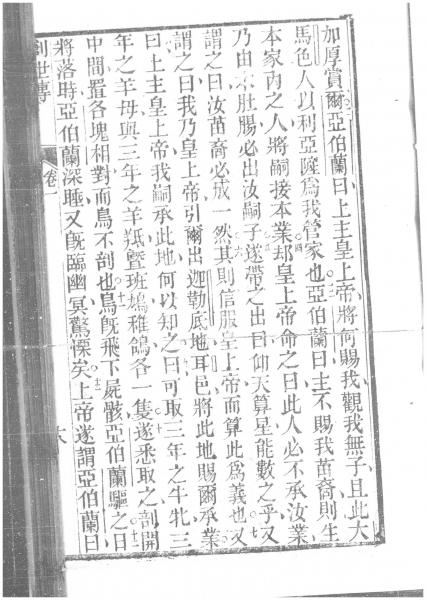 加厚賞爾亞伯蘭曰上主皇上帝將何賜我觀我無子且此大
馬色人以利亞隡爲我管家也亞伯蘭曰主不賜我苗裔則生
本家內之人將嗣接本業却皇上帝命之曰此人必不承汝業
乃由本肚腸必出汝嗣子遂帶之出曰仰天算星能數之乎又
謂之曰汝苗裔必成一然其則信服皇上帝而算此爲義也又
謂之曰我乃皇上帝引爾出迦勒底地耳邑將此地賜爾承業
曰上主皇上帝我嗣承此地何以知之曰可取三年之牛牝三
年之羊母與三年之羊羝曁班鳩稚鴿各一隻遂悉取之剖開
中間置各塊相對而鳥不剖也鳥旣飛下屍骸亞伯蘭驅之日
將落時亞伯蘭深睡又旣臨幽冥驚慄矣上帝遂謂亞伯蘭曰
創世傳 卷一 六